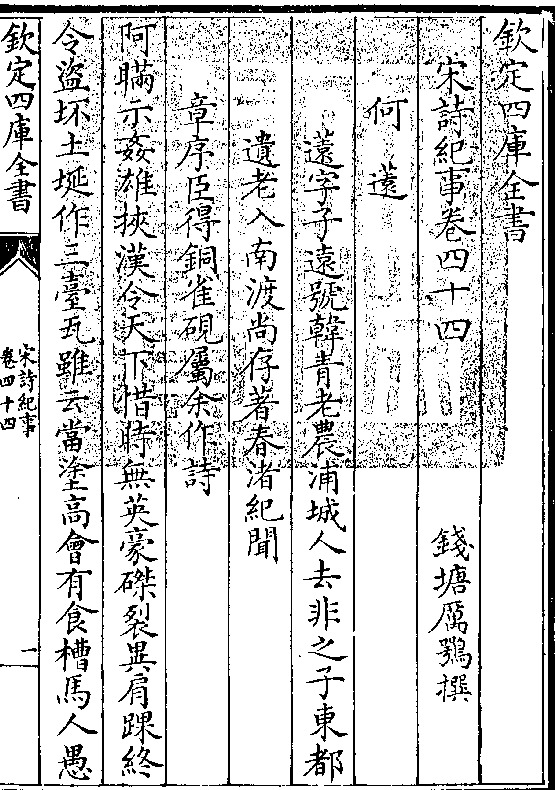 欽定四庫全書
宋詩紀事卷四十四
錢塘厲鶚撰
何薳
薳字子遠號韓青老農浦城人去非之子東都
遺老入南渡尚存著春渚紀聞
章序臣得銅雀硯屬余作詩
阿瞞示姦雄挾漢令天下惜時無英豪磔裂異肩踝終
令盜坏土埏作三臺瓦雖云當塗高會有食槽馬人愚
欽定四庫全書
宋詩紀事
卷四十四
一